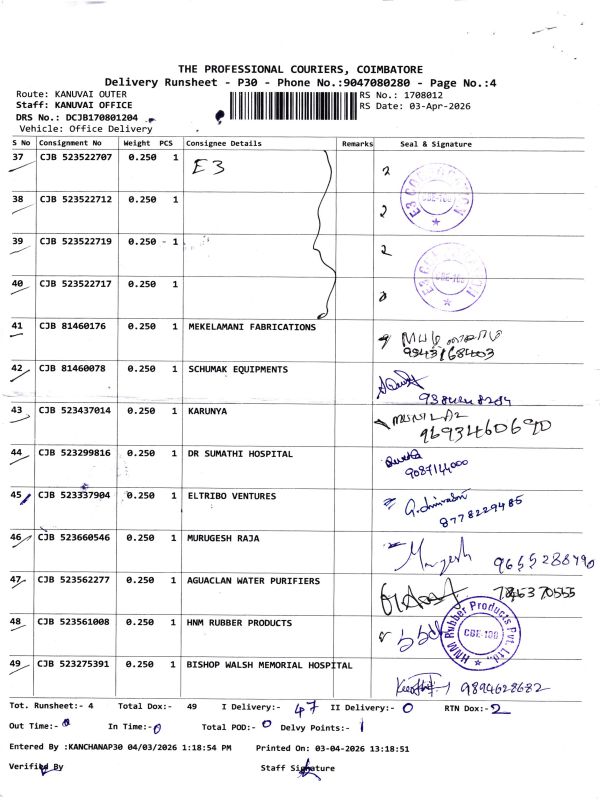 THE PROFESSIONAL COURIERS, COIMBATORE
Delivery Runsheet - P30 - Phone No.:9047080280 - Page No.:4
Route: KANUVAI OUTER
RS No.: 1708012
Staff: KANUVAI OFFICE
RS Date: 03-Apr-2026
DRS No.: DCJB170801204
Vehicle: Office Delivery
S No Consignment No Weight PCS Consignee Details Remarks Seal & Signature
37 CJB 523522707 0.250 1 E3 2
38 CJB 523522712 0.250 1 2
39 CJB 523522719 0.250 - 1 2
40 CJB 523522717 0.250 1
CBE-108
41 CJB 81460176 0.250 1 MEKELAMANI FABRICATIONS
42 CJB 81460078 0.250 1 SCHUMAK EQUIPMENTS
43 CJB 523437014 0.250 1 KARUNYA
9693460690
44 CJB 523299816 0.250 1 DR SUMATHI HOSPITAL
9087144000
45 CJB 523337904 0.250 1 ELTRIBO VENTURES
8778229485
46 CJB 523660546 0.250 1 MURUGESH RAJA
9655288490
47 CJB 523562277 0.250 1 AGUACLAN WATER PURIFIERS
48 CJB 523561008 0.250 1 HNM RUBBER PRODUCTS
HNM Rubber Products Pvt. Ltd., CBE-108
49 CJB 523275391 0.250 1 BISHOP WALSH MEMORIAL HOSPITAL
9894628682
Tot. Runsheet:- 4 Total Dox:- 49 I Delivery:- 47 II Delivery:- 0 RTN Dox:- 2
Out Time:- 0 In Time:- 0 Total POD:- 0 Delvy Points:- 1
Entered By :KANCHANAP30 04/03/2026 1:18:54 PM Printed On: 03-04-2026 13:18:51
Verified By Staff Signature